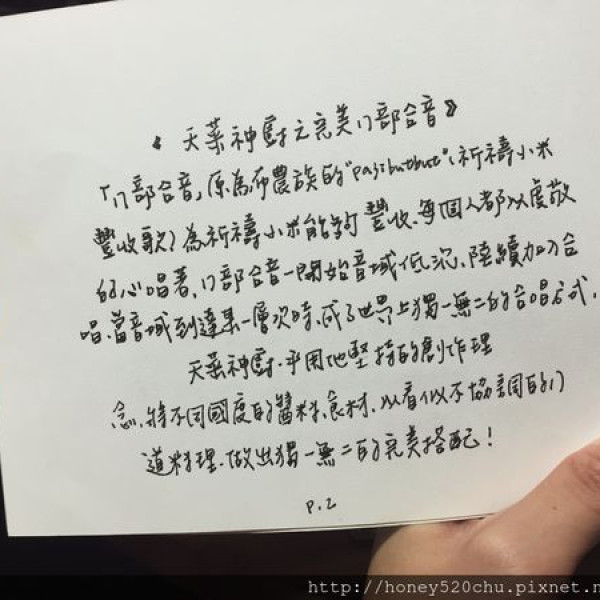 《天菜神廚之完美八部合音》
「八部合音」原為布農族的"pasibutbut"(祈禱小米
豐收歌)為祈禱小米能夠豐收、每個人都以虔敬
的心唱著、八部合音一開始音域低沉、陸續加入合
唱、當音域到達某一層次時、成了世界上獨一無二的合唱方式、
天菜神廚、平用他堅持的創作理
念、將不同國度的醬料、食材、以看似不協調的八
道料理、做出獨一無二的完美搭配!
P.2
http://honey520chu.pixnet.n